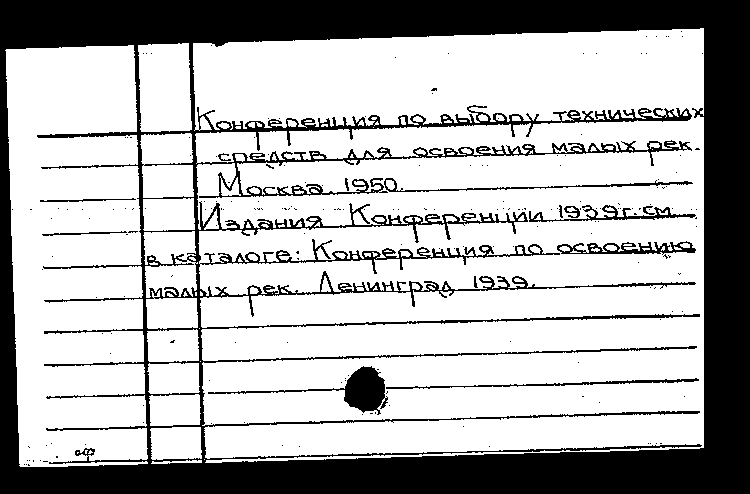 Конференция по выбору технических
средств для освоения малых рек.
Москва. 1950.
Издания Конференции 1939г. см.
в каталоге: Конференция по освоению
малых рек. Ленинград 1939.